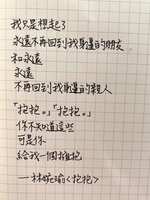 我只是想起了
永遠不再回到我身邊的朋友
和永遠
永遠
不再回到我身邊的親人
「抱抱。」「抱抱。」
你不知道這些
可是你
給我一個擁抱
——林婉瑜<抱抱>